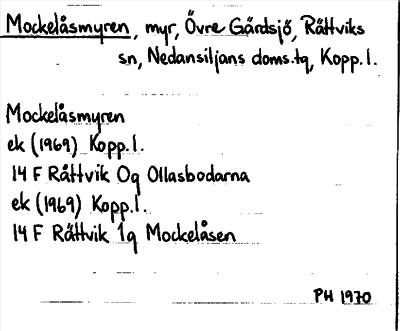 Mockelåsmyren, myr, Övre Gärdsjö, Rättviks
sn, Nedansiljans doms.tg, Kopp.l.
Mockelåsmyren
ek (1969) Kopp.l.
14 F Rättvik 0g Ollasbodarna
ek (1969) Kopp.l.
14 F Rättvik 1g Mockelåsen
PH 1970